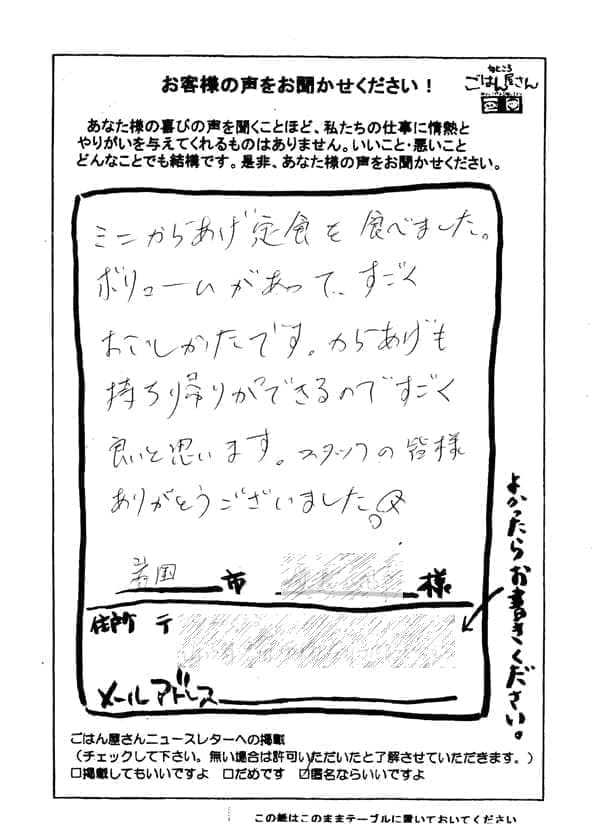 お客様の声をお聞かせください！
ごはん屋さん
あなた様の喜びの声を聞くことほど、私たちの仕事に情熱と
やりがいを与えてくれるものはありません。いいこと・悪いこと
どんなことでも結構です。是非、あなた様の声をお聞かせください。
ミニからあげ定食を食べました。
ボリュームがあって、すごく
おいしかたです。からあげも
持ち帰りができるのですごく
良いと思います。スタッフの皆様
ありがとうございました。
岩国市 様
住所 〒
メールアドレス
よかったらお書きください。
ごはん屋さんニュースレターへの掲載
（チェックして下さい。無い場合は許可いただいたと了解させていただきます。）
□掲載してもいいですよ □だめです ☑匿名ならいいですよ
この紙はこのままテーブルに置いておいてください